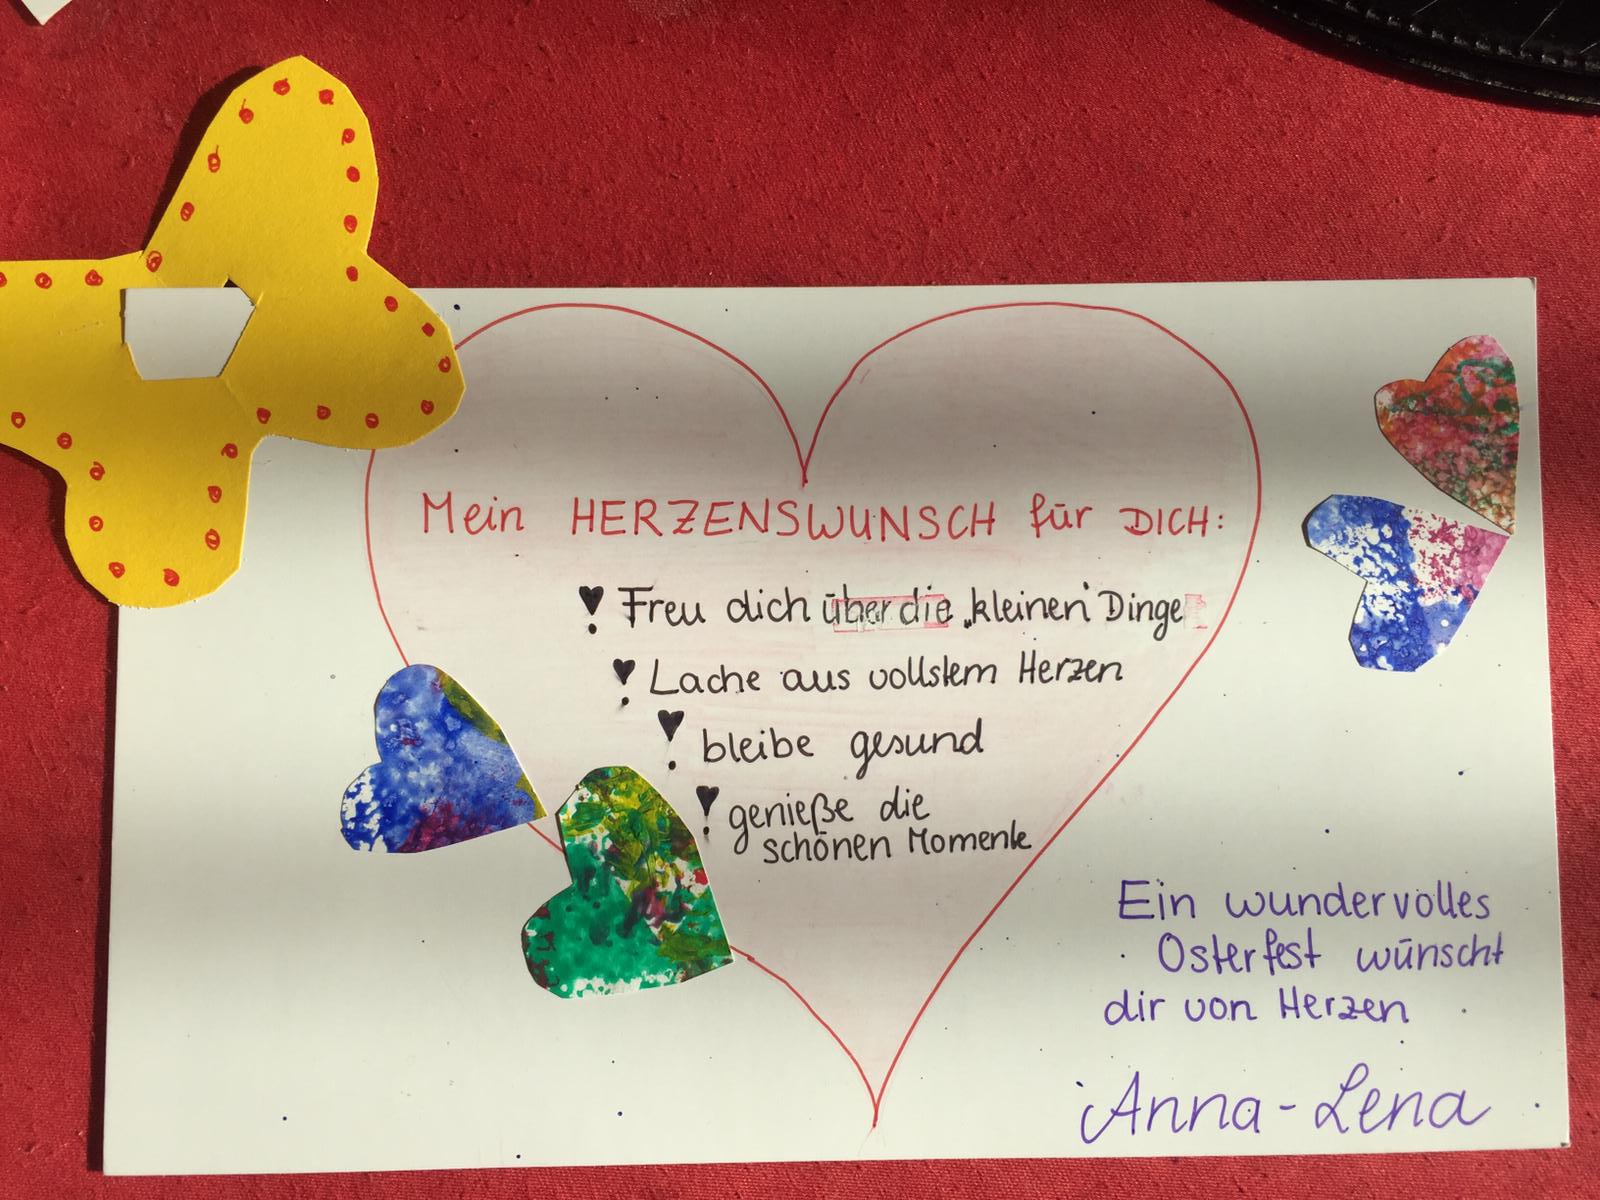 Mein HERZENSWUNSCH für DICH:
Freu dich über die „kleinen" Dinge
Lache aus vollstem Herzen
bleibe gesund
genieße die
schönen Momente
Ein wundervolles
Osterfest wünscht
dir von Herzen
Anna-Lena